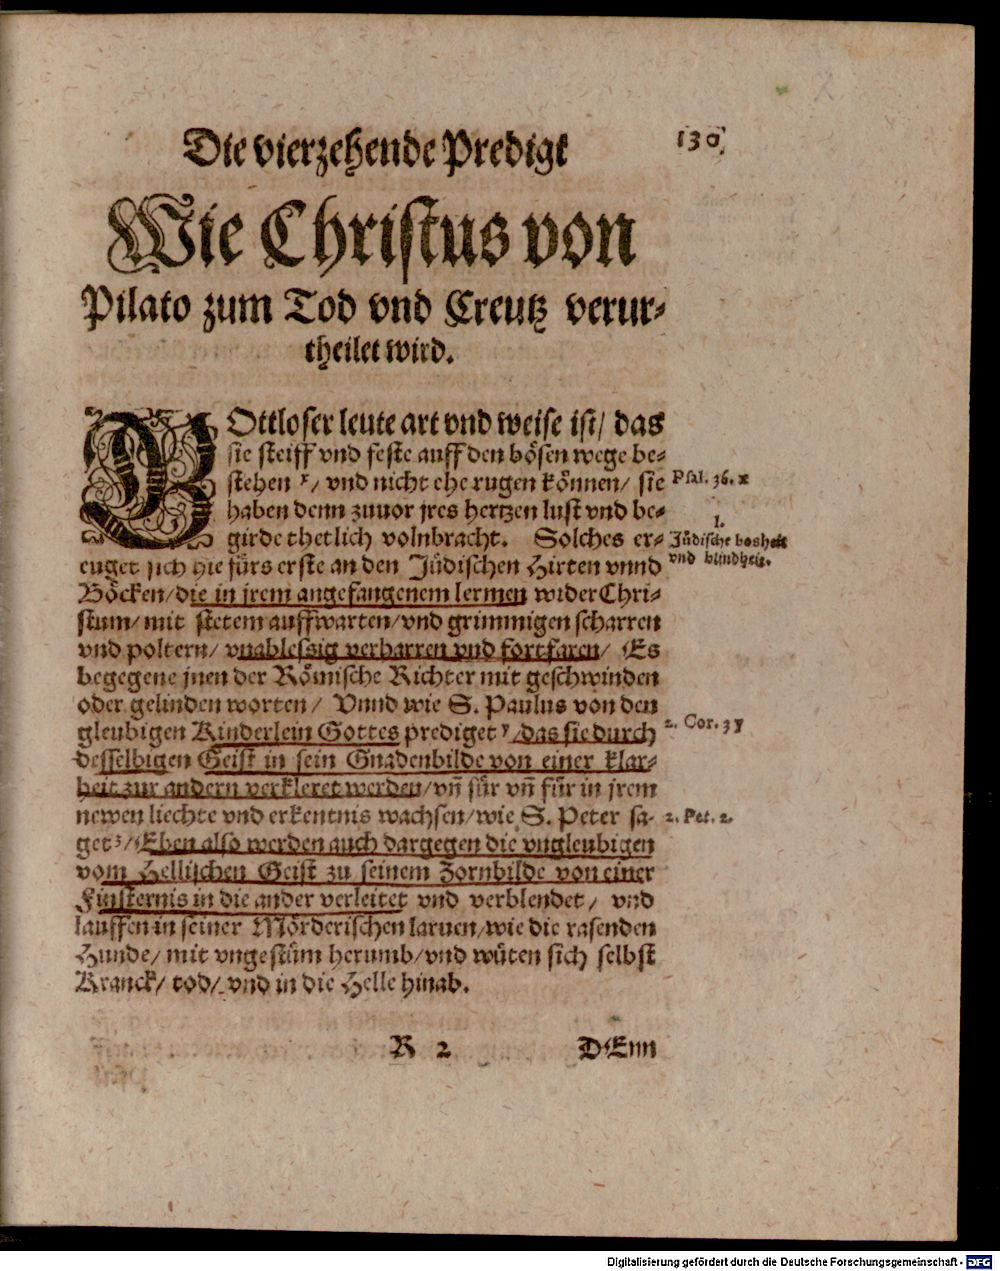 Die vierzehende Predigt
130.
Wie Christus von
Pilato zum Tod vnd Creutz verur-
theilet wird.
GOttloser leute art vnd weise ist/ das
sie steiff vnd feste auff den bösen wege be-
stehen x/ vnd nicht ehe rugen können/ sie
Psal. 36. x
haben denn zuuor jres hertzen lust vnd be-
girde thetlich volnbracht. Solches er-
I.
Jüdische bosheit
vnd blindheit.
euget sich hie fürs erste an den Jüdischen Hirten vnnd
Böcken/ die in jrem angefangenem lermen wider Chri-
stum/ mit stetem auffwarten/ vnd grimmigen scharren
vnd poltern/ vnablessig verharren vnd fortfaren/ Es
begegene jnen der Römische Richter mit geschwinden
oder gelinden worten/ Vnnd wie S. Paulus von den
gleubigen Kinderlein Gottes prediget y/ das sie durch
2. Cor. 3 y
desselbigen Geist in sein Gnadenbilde von einer klar-
heit zur andern verkleret werden/ vn̄ für vn̄ für in jrem
newen liechte vnd erkentnis wachsen/ wie S. Peter sa-
2. Pet. 2.
get z/ Eben also werden auch dargegen die vngleubigen
vom Hellischen Geist zu seinem Zornbilde von einer
Finsternis in die ander verleitet vnd verblendet/ vnd
lauffen in seiner Mörderischen laruen/ wie die rasenden
Hunde/ mit vngestüm herumb/ vnd wüten sich selbst
Kranck/ tod/ vnd in die Helle hinab.
R 2
DEnn
Digitalisierung gefördert durch die Deutsche Forschungsgemeinschaft - DFG